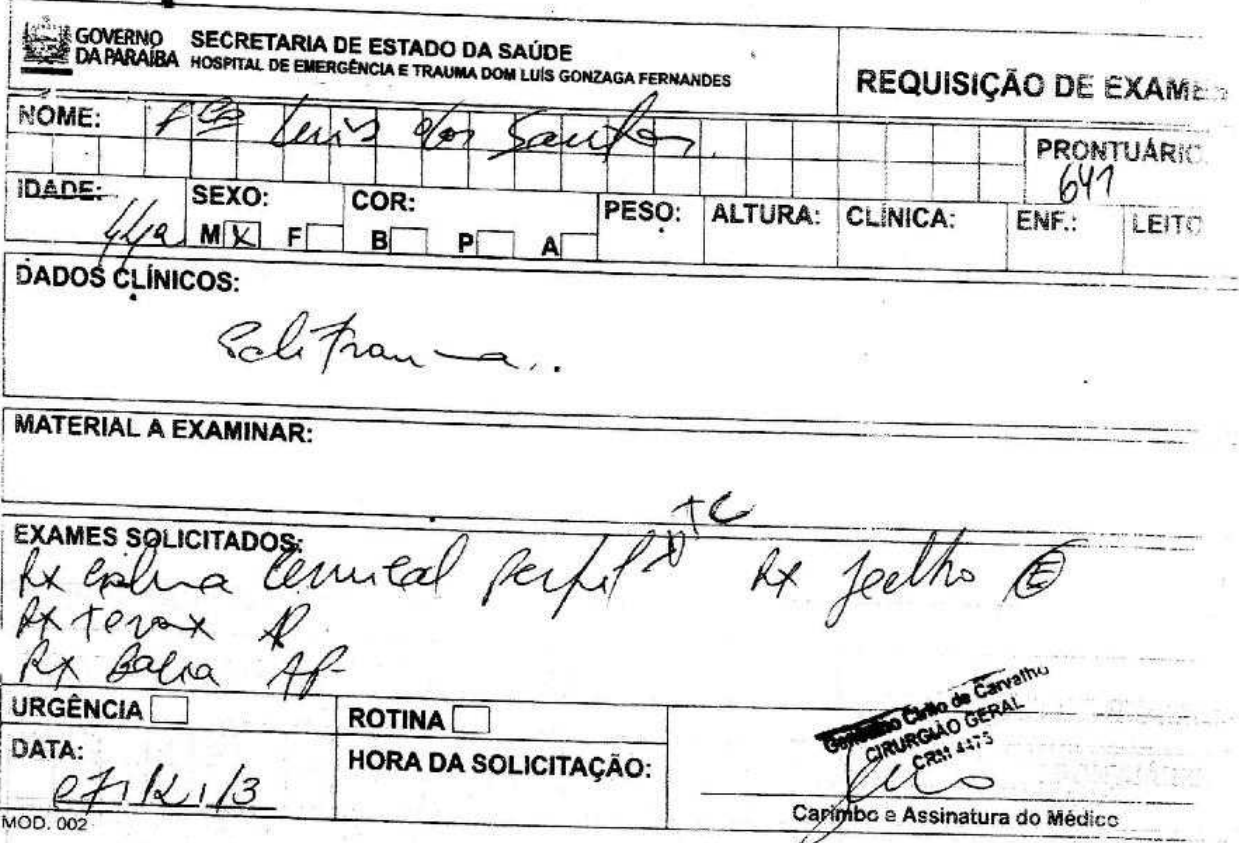 GOVERNO
DA PARAÍBA
SECRETARIA DE ESTADO DA SAÚDE
HOSPITAL DE EMERGÊNCIA E TRAUMA DOM LUÍS GONZAGA FERNANDES
REQUISIÇÃO DE EXAMES
NOME: Fco Luis dos Santos.
PRONTUÁRIO
641
IDADE: 44a SEXO: M X F COR: B P A PESO: ALTURA: CLÍNICA: ENF.: LEITO
DADOS CLÍNICOS:
Politrauma..
MATERIAL A EXAMINAR:
EXAMES SOLICITADOS:
TC
Rx coluna Cervical perfil Rx Joelho E
Rx torax AP
Rx Bacia AP
URGÊNCIA ROTINA
DATA: 07/12/13
HORA DA SOLICITAÇÃO:
Cirilo de Carvalho
CIRURGIÃO GERAL
CRM 4475
Carimbo e Assinatura do Médico
MOD. 002